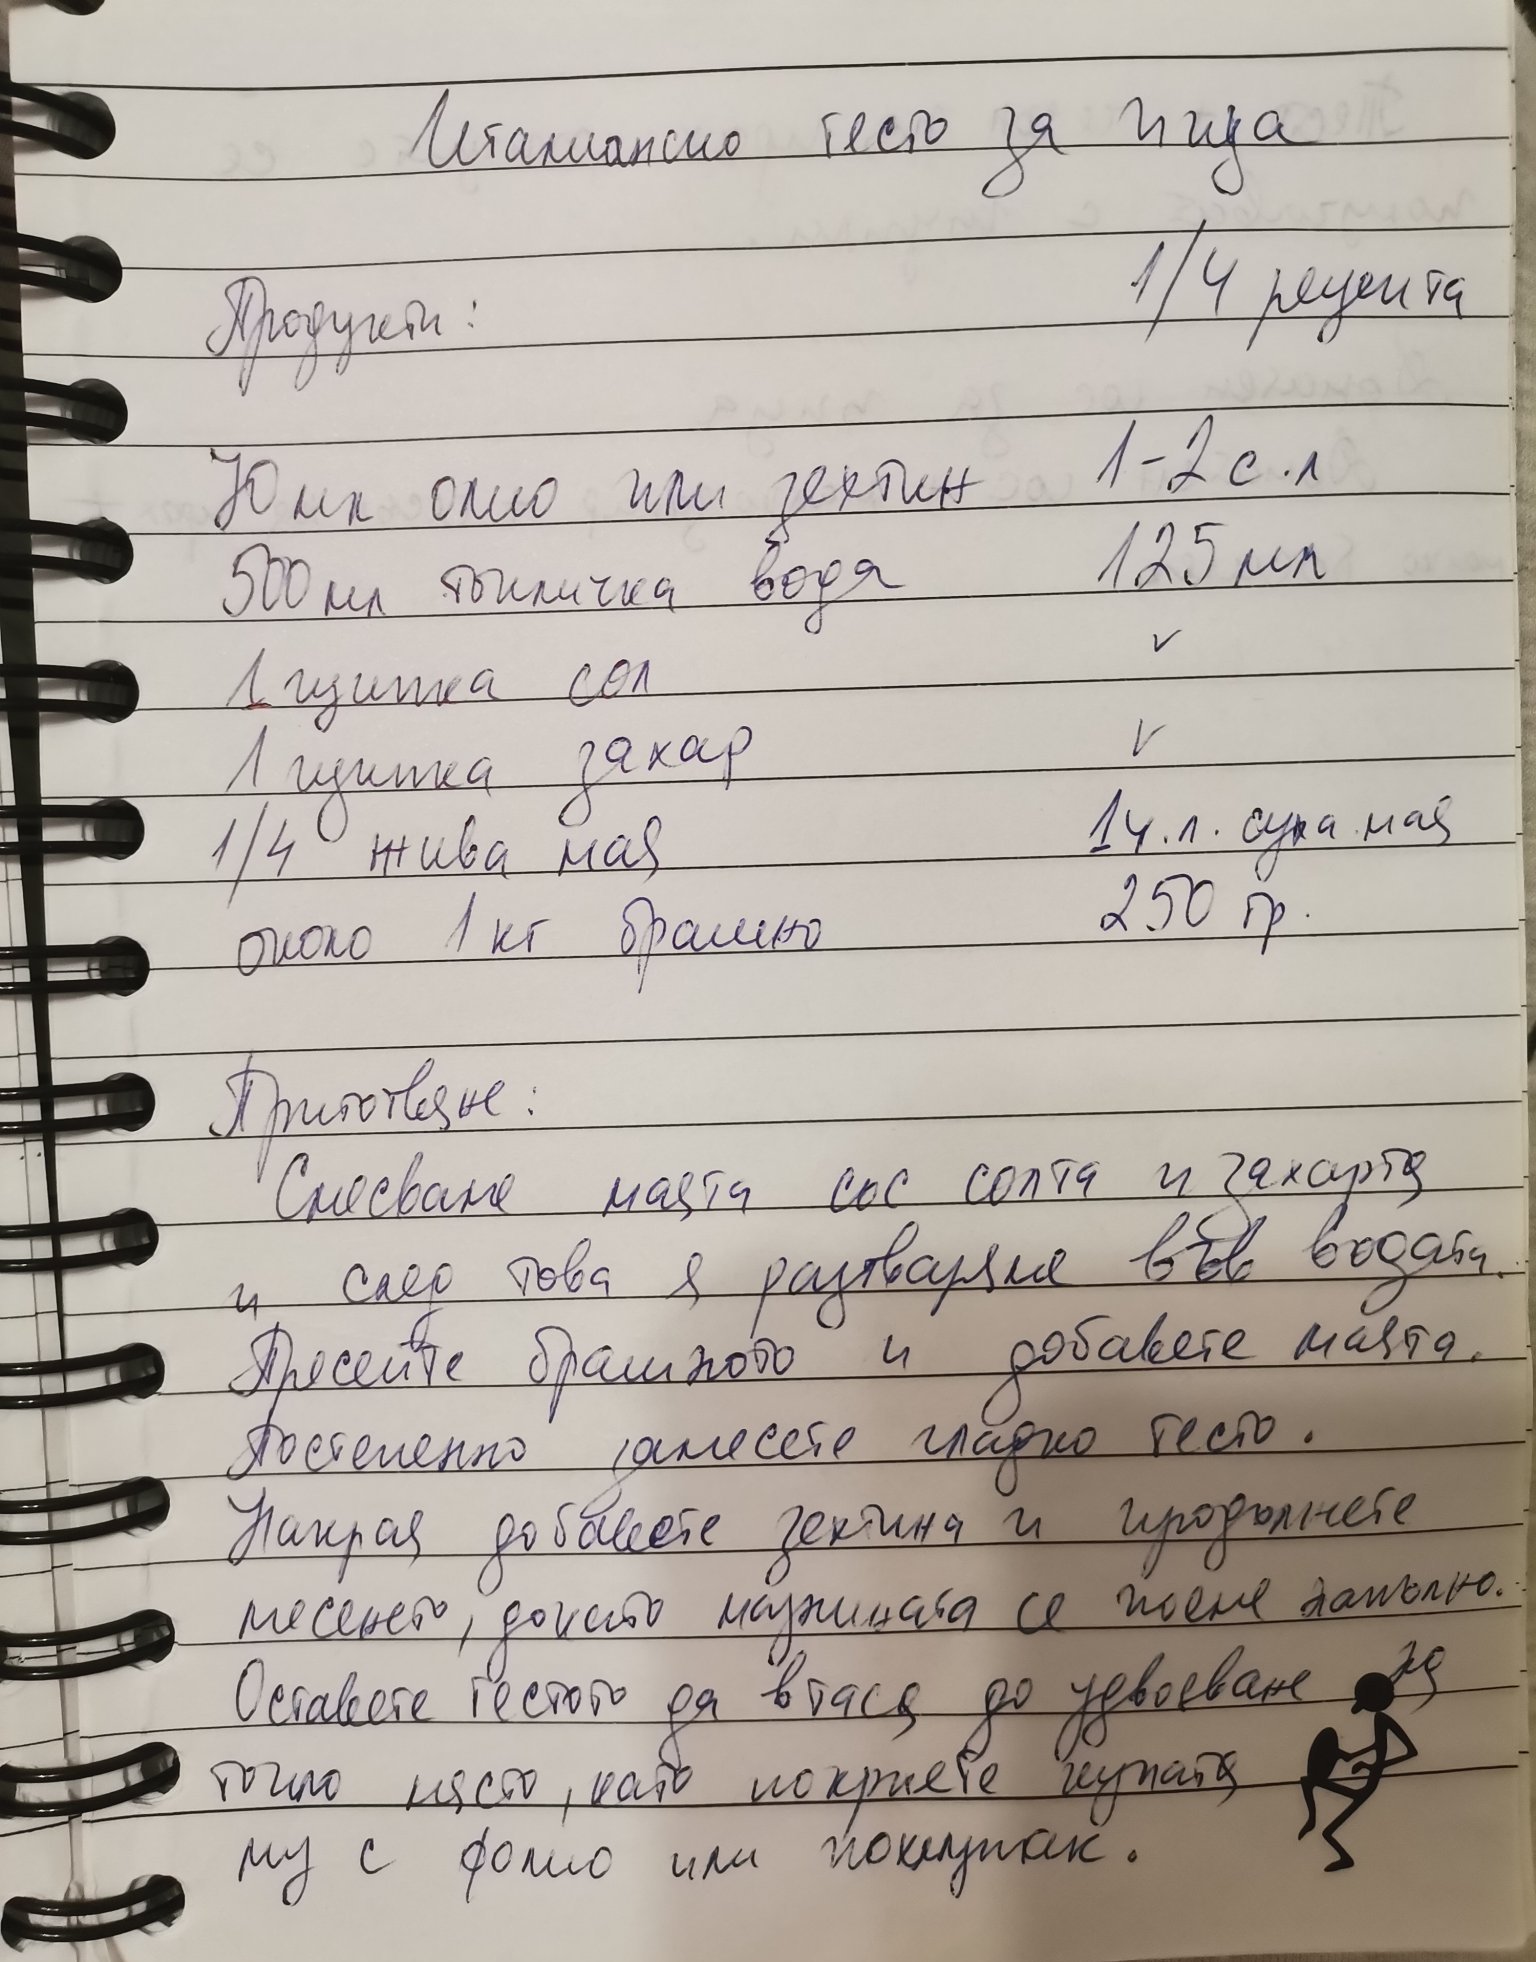 Италианско тесто за пица
1/4 рецепта
Продукти:
мл олио или зехтин 1-2 с.л
500 мл топличка вода 125 мл
1 щипка сол ✓
1 щипка захар ✓
1/4 жива мая 1 ч.л. суха мая
около 1 кг брашно 250 гр.
Приготвяне:
Смесваме маята със солта и захарта
и след това я разтваряме във водата.
Пресейте брашното и добавете маята.
Постепенно замесете гладко тесто.
Накрая добавете зехтина и продължете
месенето, докато мазнината се поеме напълно.
Оставете тестото да втаса до удвояване на
топло място, като покриете купата
му с фолио или похлупак.